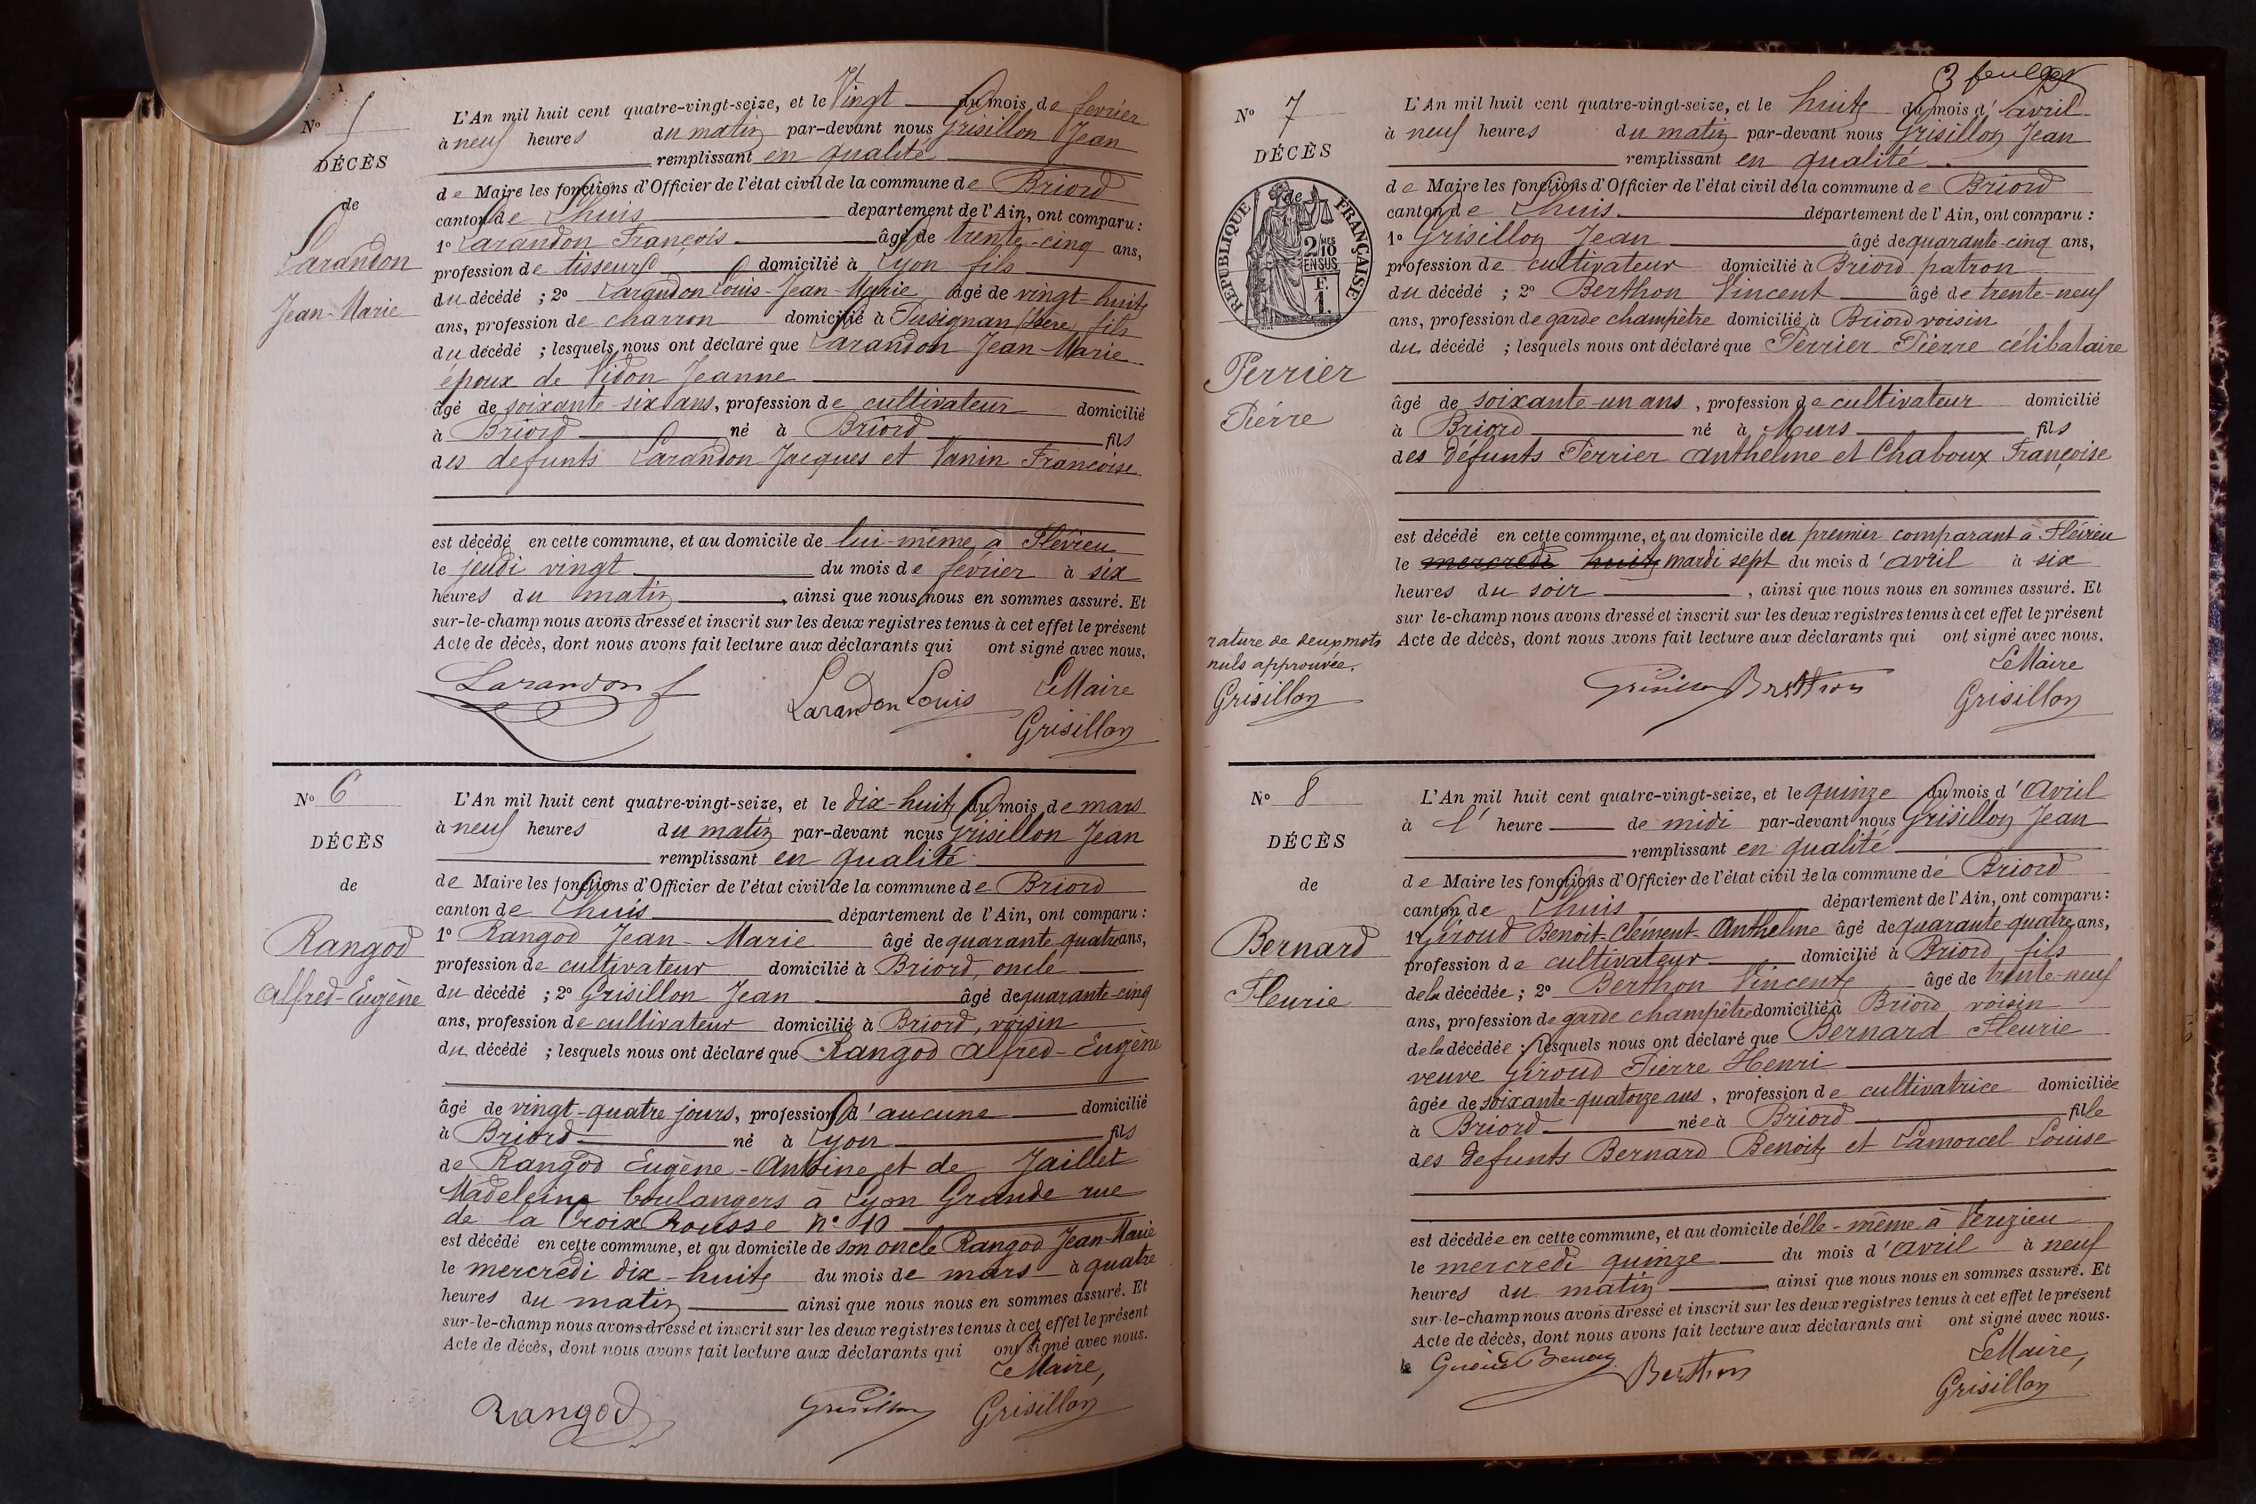 N° 5
DÉCÈS
de
Larandon
Jean-Marie
L'An mil huit cent quatre-vingt-seize, et le Vingt du mois de fevrier
à neuf heures du matin par-devant nous Grisillon Jean
remplissant en qualité
de Maire les fonctions d'Officier de l'état civil de la commune de Briord
canton de Lhuis departement de l'Ain, ont comparu :
1° Larandon François âgé de trente-cinq ans,
profession de tisseur domicilié à Lyon fils
du décédé ; 2° Larandon Louis-Jean-Marie âgé de vingt-huit
ans, profession de charron domicilié à Pusignan Isère fils
du décédé ; lesquels nous ont déclaré que Larandon Jean Marie
époux de Vidon Jeanne
âgé de soixante-six ans, profession de cultivateur domicilié
à Briord né à Briord fils
des defunts Larandon Jacques et Vanin Francoise
est décédé en cette commune, et au domicile de lui-même à Flévieu
le jeudi vingt du mois de février à six
heures du matin, ainsi que nous nous en sommes assuré. Et
sur-le-champ nous avons dressé et inscrit sur les deux registres tenus à cet effet le présent
Acte de décès, dont nous avons fait lecture aux déclarants qui ont signé avec nous.
Larandon f Larandon Louis Le Maire
Grisillon
N° 6
DÉCÈS
de
Rangod
Alfred-Eugène
L'An mil huit cent quatre-vingt-seize, et le dix-huit du mois de mars
à neuf heures du matin par-devant nous Grisillon Jean
remplissant en qualité
de Maire les fonctions d'Officier de l'état civil de la commune de Briord
canton de Lhuis département de l'Ain, ont comparu :
1° Rangod Jean-Marie âgé de quarante quatre ans,
profession de cultivateur domicilié à Briord, oncle
du décédé ; 2° Grisillon Jean âgé de quarante-cinq
ans, profession de cultivateur domicilié à Briord, voisin
du décédé ; lesquels nous ont déclaré que Rangod Alfred-Eugène
âgé de vingt-quatre jours, profession d'aucune domicilié
à Briord né à Lyon fils
de Rangod Eugène-Antoine et de Jaillet
Madeleine boulangers à Lyon Grande rue
de la Croix Rousse n° 10
est décédé en cette commune, et au domicile de son oncle Rangod Jean-Marie
le mercredi dix-huit du mois de mars à quatre
heures du matin ainsi que nous nous en sommes assuré. Et
sur-le-champ nous avons dressé et inscrit sur les deux registres tenus à cet effet le présent
Acte de décès, dont nous avons fait lecture aux déclarants qui ont signé avec nous.
Le Maire,
Rangod Grisillon Grisillon
3 feuillet
N° 7
DÉCÈS
de
RÉPUBLIQUE FRANÇAISE
2/10MES
EN SUS
F.
1.
Perrier
Pierre
L'An mil huit cent quatre-vingt-seize, et le huit du mois d'avril
à neuf heures du matin par-devant nous Grisillon Jean
remplissant en qualité
de Maire les fonctions d'Officier de l'état civil de la commune de Briord
canton de Lhuis département de l'Ain, ont comparu :
1° Grisillon Jean âgé de quarante-cinq ans,
profession de cultivateur domicilié à Briord patron
du décédé ; 2° Berthon Vincent âgé de trente-neuf
ans, profession de garde champêtre domicilié à Briord voisin
du décédé ; lesquels nous ont déclaré que Perrier Pierre célibataire
âgé de soixante-un ans, profession de cultivateur domicilié
à Briord né à Murs fils
des défunts Perrier Anthelme et Chaboux Françoise
est décédé en cette commune, et au domicile du premier comparant à Flévieu
le mercredi huit mardi sept du mois d'avril à six
heures du soir, ainsi que nous nous en sommes assuré. Et
sur le-champ nous avons dressé et inscrit sur les deux registres tenus à cet effet le présent
Acte de décès, dont nous avons fait lecture aux déclarants qui ont signé avec nous.
rature de deux mots
nuls approuvée.
Grisillon
Grisillon Berthon
Le Maire
Grisillon
N° 8
DÉCÈS
de
Bernard
Fleurie
L'An mil huit cent quatre-vingt-seize, et le quinze du mois d'Avril
à l'heure de midi par-devant nous Grisillon Jean
remplissant en qualité
de Maire les fonctions d'Officier de l'état civil de la commune de Briord
canton de Lhuis département de l'Ain, ont comparu :
1° Giroud Benoit-Clément-Anthelme âgé de quarante-quatre ans,
profession de cultivateur domicilié à Briord fils
de la décédée ; 2° Berthon Vincent âgé de trente-neuf
ans, profession de garde champêtre domicilié à Briord voisin
de la décédée ; lesquels nous ont déclaré que Bernard Fleurie
veuve Giroud Pierre Henri
âgée de soixante-quatorze ans, profession de cultivatrice domiciliée
à Briord née à Briord fille
des defunts Bernard Benoit et Lamorcel Louise
est décédée en cette commune, et au domicile d'elle-même à Verizieu
le mercredi quinze du mois d'avril à neuf
heures du matin ainsi que nous nous en sommes assuré. Et
sur-le-champ nous avons dressé et inscrit sur les deux registres tenus à cet effet le présent
Acte de décès, dont nous avons fait lecture aux déclarants qui ont signé avec nous.
Berthon
Le Maire,
Grisillon